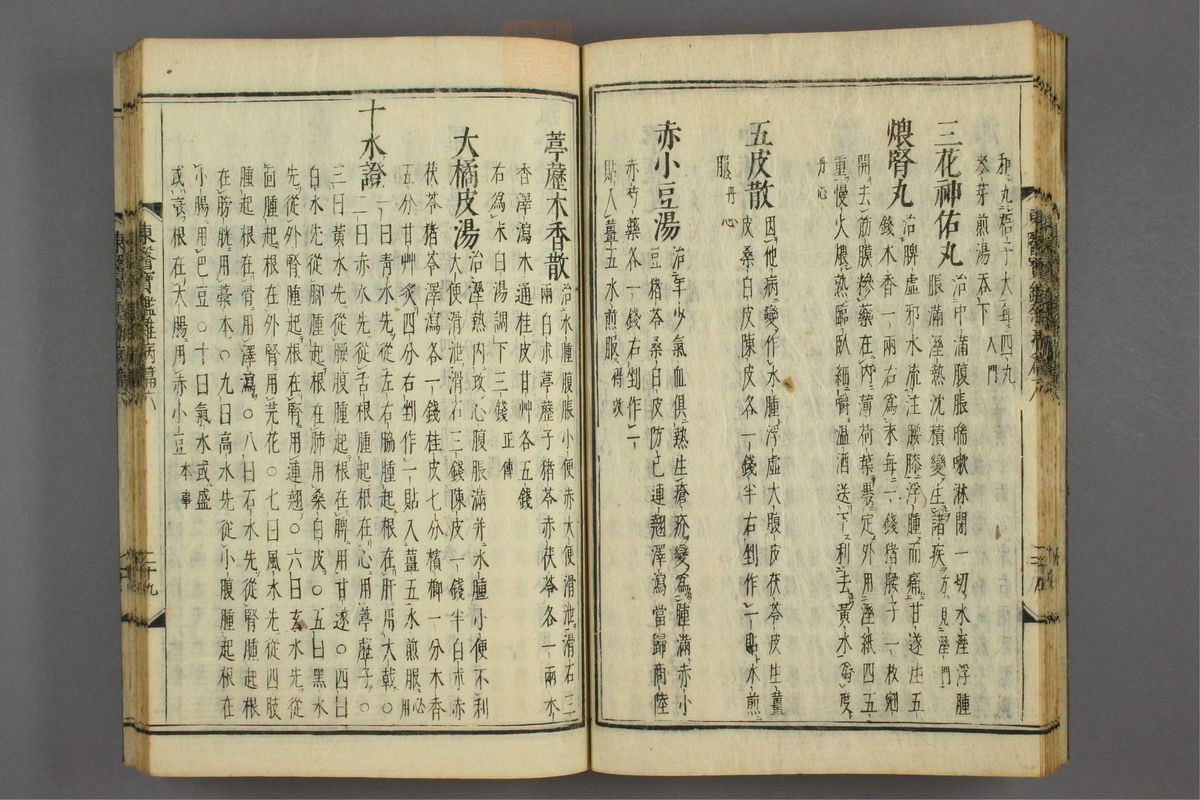 和丸梧子大每四丸
麥芽煎湯吞下入門
三花神佑丸治中滿腹脹喘嗽淋閉一切水溼浮腫
脹滿溼熱沈積變生諸疾方見溼門
煨腎丸治脾虛邪水流注腰膝浮腫而痛甘遂生五
錢木香一兩右爲末每二錢猪腰子一枚剜
開去筋膜摻藥在內薄荷葉褁定外用溼紙四五
重慢火煨熟臨臥細嚼溫酒送下利去黃水爲度
丹心
五皮散因他病變作水腫浮虛大腹皮茯苓皮生薑
皮桑白皮陳皮各一錢半右剉作一貼水煎
服丹心
赤小豆湯治年少氣血俱熱生瘡疥變爲腫滿赤小
豆猪苓桑白皮防己連翹澤瀉當歸商陸
赤芍藥各一錢右剉作一
貼入薑五水煎服得效
葶藶木香散治水腫腹脹小便赤大便滑泄滑石三
兩白朮葶藶子猪苓赤茯苓各一兩木
香澤瀉木通桂皮甘艸各五錢
右爲末白湯調下三錢正傳
大橘皮湯治溼熱內攻心腹脹滿并水腫小便不利
大便滑泄滑石三錢陳皮一錢半白朮赤
茯苓猪苓澤瀉各一錢桂皮七分檳榔一分木香
五分甘艸炙四分右剉作一貼入薑五水煎服用心
十水證一曰靑水先從左右脇腫起根在肝用大戟○
二曰赤水先從舌根腫起根在心用葶藶子○
三曰黃水先從腰腹腫起根在脾用甘遂○四曰
白水先從脚腫起根在肺用桑白皮○五曰黑水
先從外腎腫起根在腎用連翹○六曰玄水先從
面腫起根在外腎用芫花○七曰風水先從四肢
腫起根在骨用澤瀉○八曰石水先從腎腫起根
在膀胱用藁本○九曰高水先從小腹腫起根在
小腸用巴豆○十曰氣水或盛
或衰根在大腸用赤小豆本事
東醫寶鑑雜病篇六
二十九